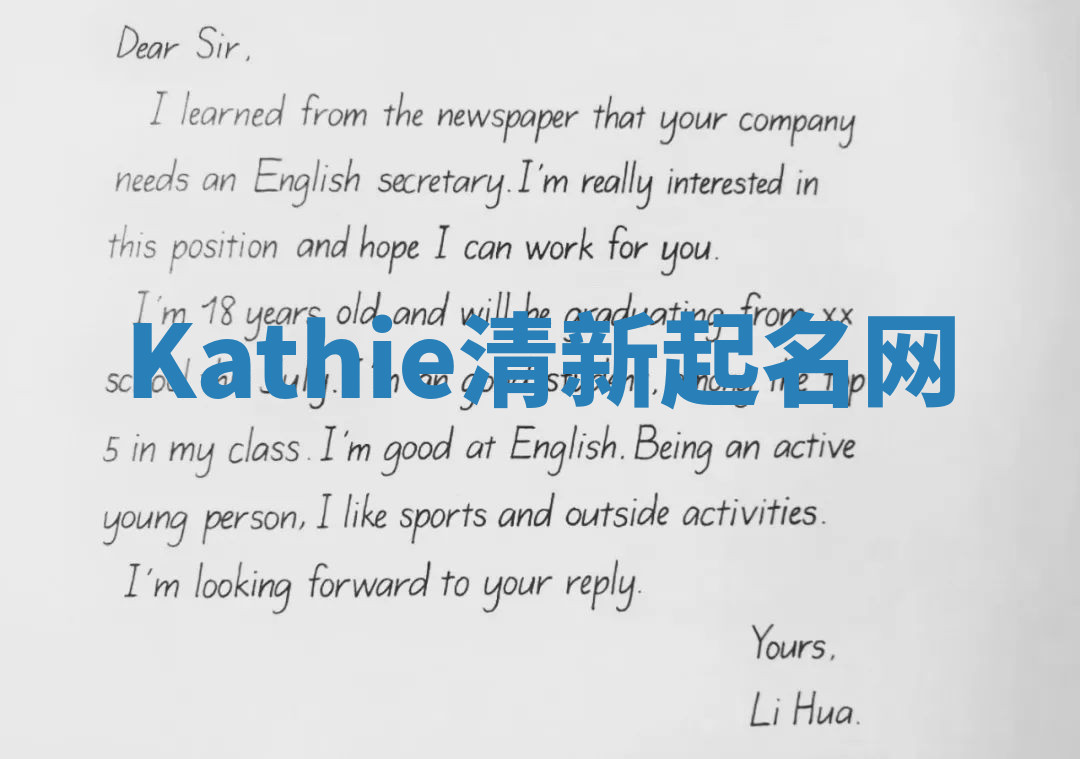 Dear Sir,
I learned from the newspaper that your company
needs an English secretary. I'm really interested in
this position and hope I can work for you.
I'm 18 years old and will be graduating from xx
Kathie清新起名网
school in July. I'm an good student, among the top
5 in my class. I'm good at English. Being an active
young person, I like sports and outside activities.
I'm looking forward to your reply.
Yours,
Li Hua.